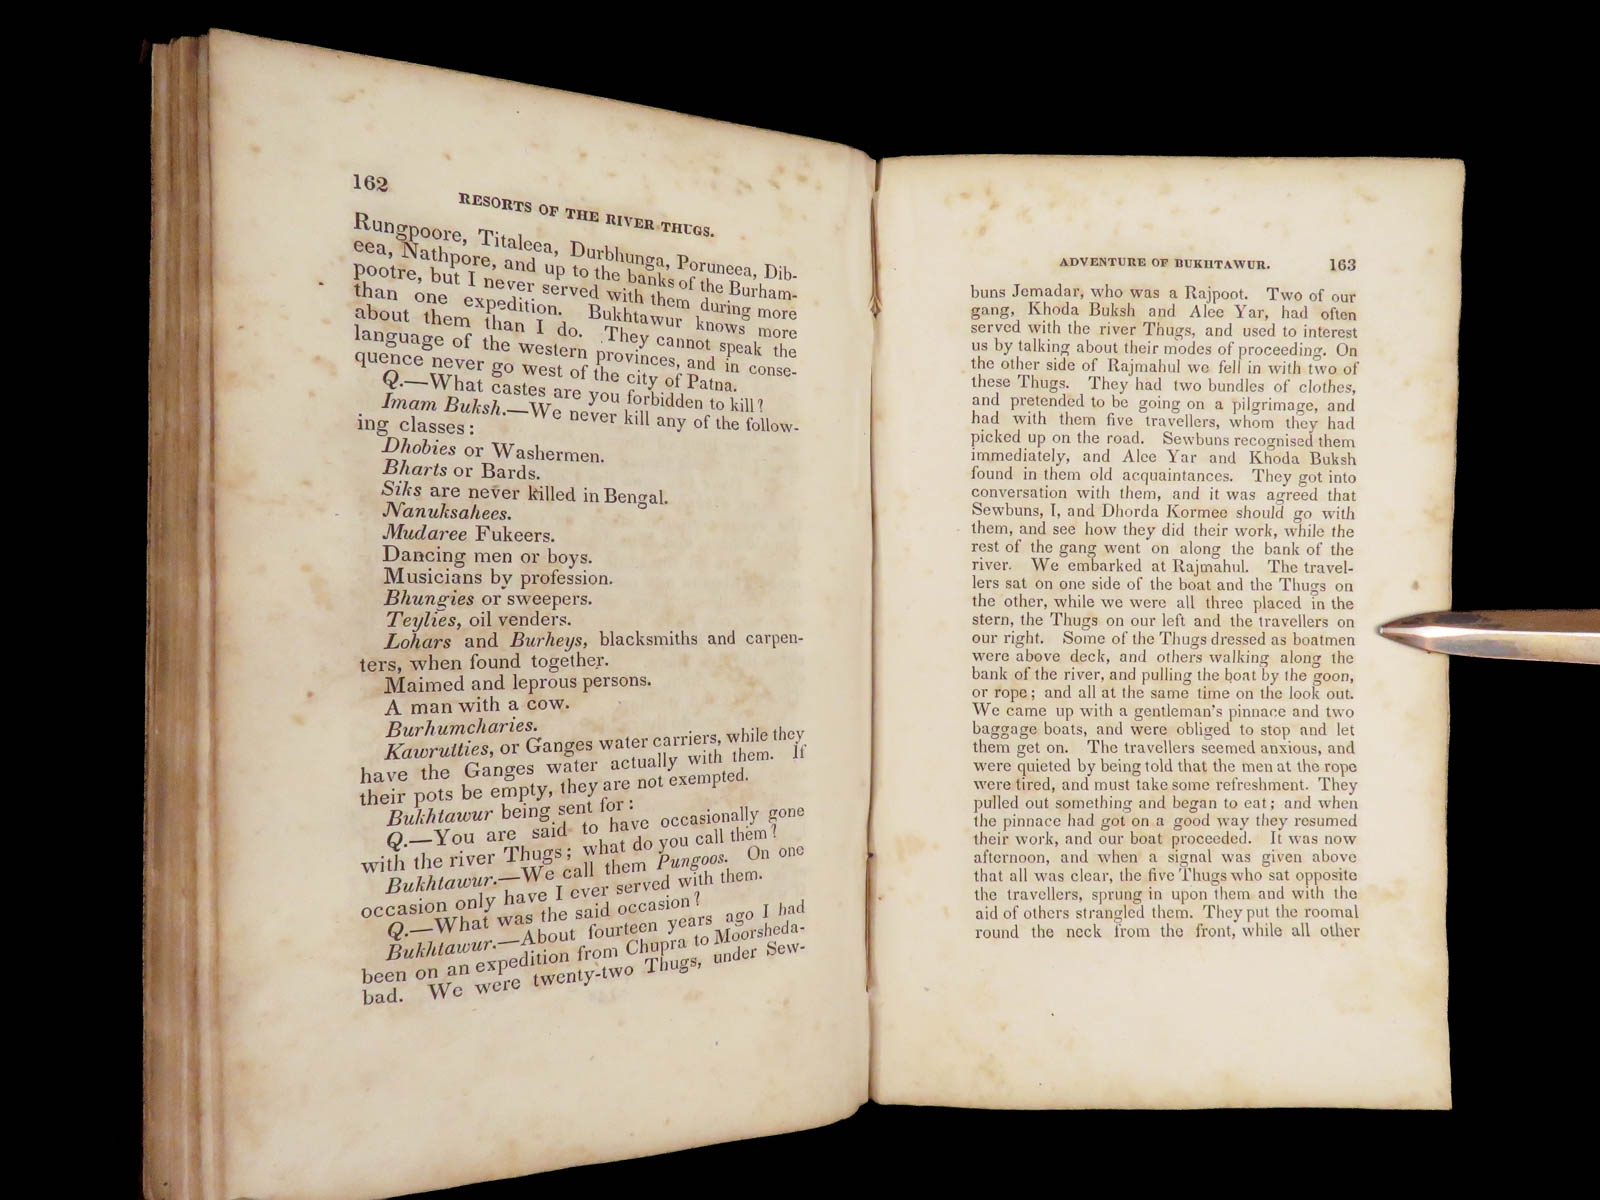 162
RESORTS OF THE RIVER THUGS.
Rungpoore, Titaleea, Durbhunga, Poruneea, Dib-
eea, Nathpore, and up to the banks of the Burham-
pootre, but I never served with them during more
than one expedition. Bukhtawur knows more
about them than I do. They cannot speak the
language of the western provinces, and in conse-
quence never go west of the city of Patna.
Q.—What castes are you forbidden to kill?
Imam Buksh.—We never kill any of the follow-
ing classes:
Dhobies or Washermen.
Bharts or Bards.
Siks are never killed in Bengal.
Nanuksahees.
Mudaree Fukeers.
Dancing men or boys.
Musicians by profession.
Bhungies or sweepers.
Teylies, oil venders.
Lohars and Burheys, blacksmiths and carpen-
ters, when found together.
Maimed and leprous persons.
A man with a cow.
Burhumcharies.
Kawrutties, or Ganges water carriers, while they
have the Ganges water actually with them. If
their pots be empty, they are not exempted.
Bukhtawur being sent for:
Q.—You are said to have occasionally gone
with the river Thugs; what do you call them?
Bukhtawur.—We call them Pungoos. On one
occasion only have I ever served with them.
Q.—What was the said occasion?
Bukhtawur.—About fourteen years ago I had
been on an expedition from Chupra to Moorsheda-
bad. We were twenty-two Thugs, under Sew-
ADVENTURE OF BUKHTAWUR. 163
buns Jemadar, who was a Rajpoot. Two of our
gang, Khoda Buksh and Alee Yar, had often
served with the river Thugs, and used to interest
us by talking about their modes of proceeding. On
the other side of Rajmahul we fell in with two of
these Thugs. They had two bundles of clothes,
and pretended to be going on a pilgrimage, and
had with them five travellers, whom they had
picked up on the road. Sewbuns recognised them
immediately, and Alee Yar and Khoda Buksh
found in them old acquaintances. They got into
conversation with them, and it was agreed that
Sewbuns, I, and Dhorda Kormee should go with
them, and see how they did their work, while the
rest of the gang went on along the bank of the
river. We embarked at Rajmahul. The travel-
lers sat on one side of the boat and the Thugs on
the other, while we were all three placed in the
stern, the Thugs on our left and the travellers on
our right. Some of the Thugs dressed as boatmen
were above deck, and others walking along the
bank of the river, and pulling the boat by the goon,
or rope; and all at the same time on the look out.
We came up with a gentleman's pinnace and two
baggage boats, and were obliged to stop and let
them get on. The travellers seemed anxious, and
were quieted by being told that the men at the rope
were tired, and must take some refreshment. They
pulled out something and began to eat; and when
the pinnace had got on a good way they resumed
their work, and our boat proceeded. It was now
afternoon, and when a signal was given above
that all was clear, the five Thugs who sat opposite
the travellers, sprung in upon them and with the
aid of others strangled them. They put the roomal
round the neck from the front, while all other